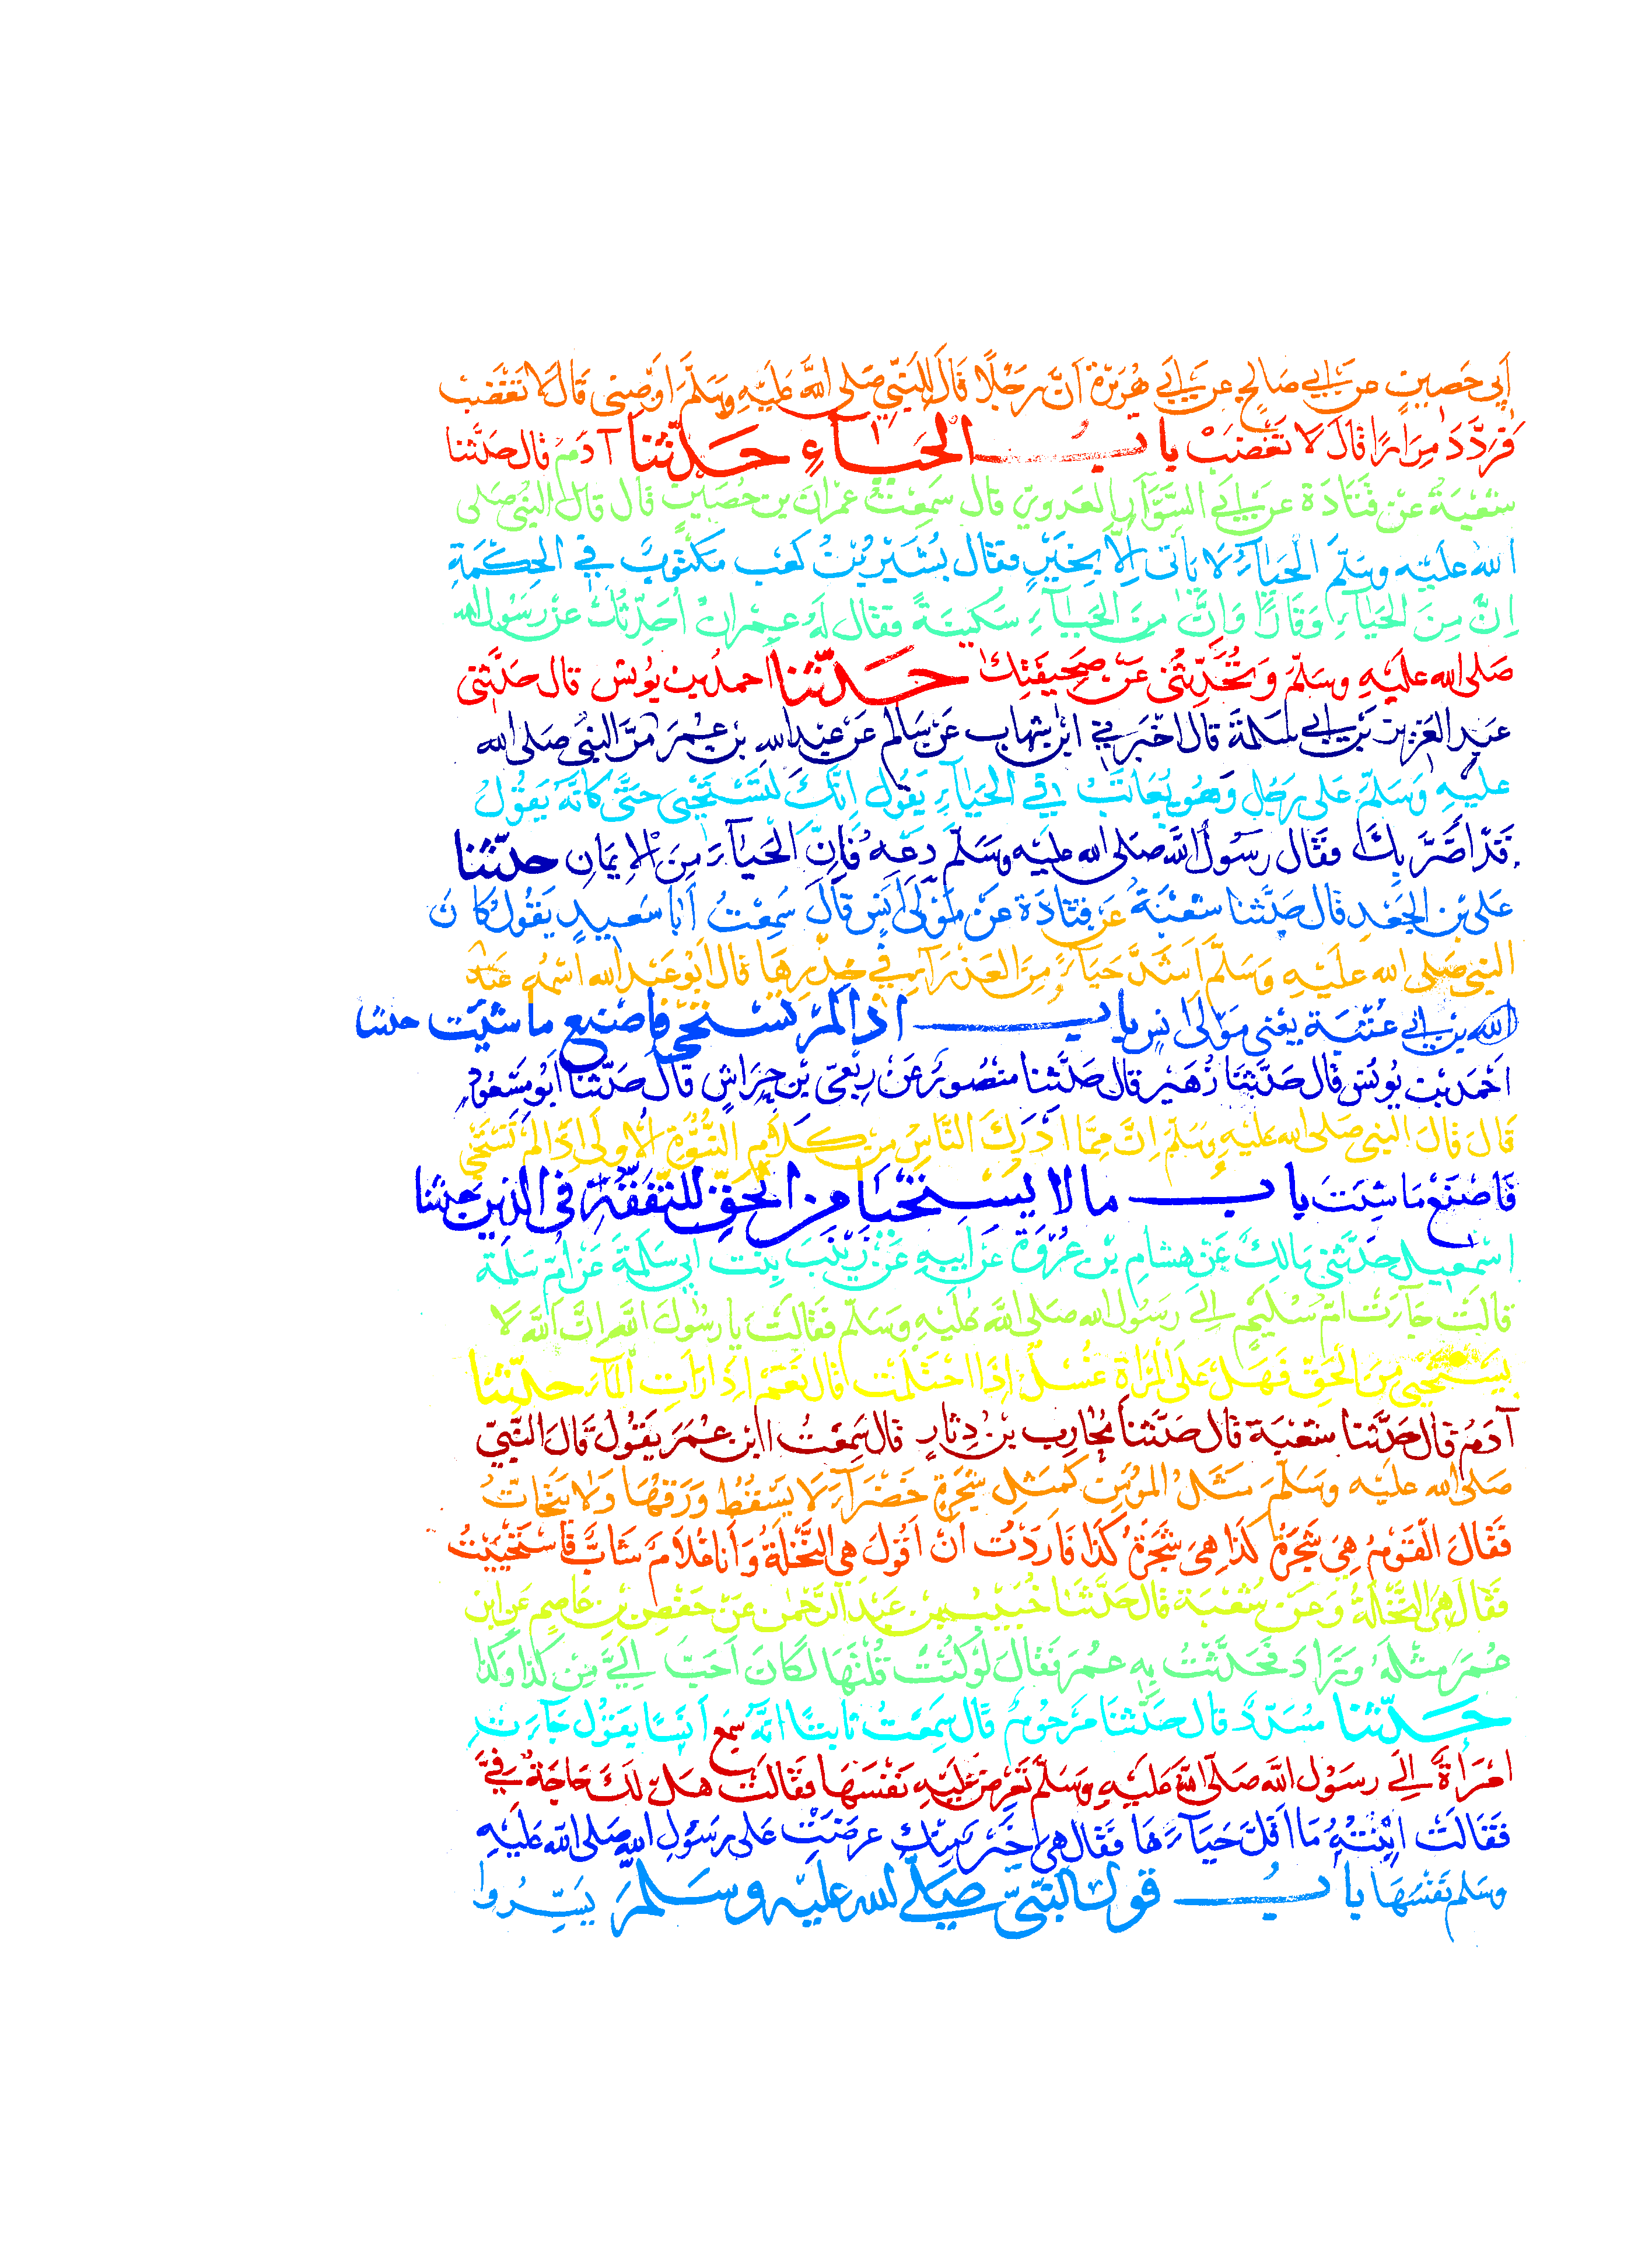 أَبِي حَصِينٍ عن أبي صَالحٍ عن أَبي هُرَيْرَةَ أَنَّ رَجُلًا قَالَ لِلنَّبِيِّ صَلى اللَّهُ عَلَيْهِ وَسَلَّمَ اَوْصِنِى قَالَ لَا تَغْضَبْ
فَرَدَّدَ مِرَارًا قَالَ لَا تَغْضَبْ بابُ الحَيَاءِ حَدّثنا آدَمُ قال حَدَّثنا
شُعْبَةُ عَنْ قَتَادَةَ عَنْ أَبِي السَّوَّارِ العَدَوِيّ قال سَمِعْتُ عِمْرَانَ بن حُصَيْنٍ قال قال النبيُّ صَلى
الله عَلَيْهِ وسَلَّمَ الحَيَآءُ لَا يَأتى اِلَّا بِخَيْرٍ فقال بُشَيْرُ بْنُ كَعْب مَكْتُوبٌ في الحِكْمَةِ
اِنَّ مِنَ الحَيَاءِ وَقَارًا وَاِنَّ مِنَ الحَيَآءِ سَكِينَةً فقال لَهُ عِمْرَانُ أُحَدِّثُكَ عن رَسُول الله
صَلى الله عليْهِ وسَلّم وَتُحَدِّثُنى عَنْ صَحِيفَتِكَ حَدّثنا احمدُ بن يُونس قال حَدَّثَنى
عَبْد العَزِيز بْنُ أبي سَلَمَةَ قال اخْبَرَني ابْن شِهاب عَنْ سَالم عَنْ عَبْدِ اللهِ بْن عُمَرَ مَرَّ النبيُّ صَلى الله
عليْهِ وَسَلَّمَ على رَجُل وَهُو يُعَاتَبُ في الحَيَآءِ يَقُول اِنَّكَ لَتَسْتَحْيى حَتَّى كَأنَّهُ يَقُولُ
قَدْ أَضَرَّ بِكَ فقَال رَسُولُ اللَّه صَلى الله عليْه وَسَلَّم دَعْهُ فَإِنَّ الحَيَآءَ مِنَ الْإيمَانِ حدّثنا
على بْن الجَعْدِ قال حَدَّثنا شعْبَةُ عَنْ قَتَادَةَ عَنْ مَوْلَى اَنَسٍ قَالَ سَمِعْتُ أَبَا سَعيدٍ يَقُولُ كَانَ
النبي صَلى الله عليْهِ وَسَلَّمَ اَشَدَّ حَيَآءً مِنَ العَذْرَآءِ في خِدْرِهَا قال اَبُو عَبْد الله اسْمُهُ عَبْدُ
الله بن أبي عُتْبَة يعْنى مَوْلى انس باب اذا لَمْ تَسْتَحْيِ فاصْنَع ما شئت حدثنا
اَحْمَد بْن يُونُس قال حَدَّثنا زُهَيْر قال حَدَّثنا منْصُورٌ عَنْ رِبْعيّ بْن حِرَاشٍ قال حَدّثنا اَبُو مَسْعُودٍ
قالَ قالَ النبي صَلى الله عليْهِ وسَلَّمَ اِنَّ مِمَّا اَدْرَكَ النَّاسُ مِنْ كَلَامِ النُّبُوَّةِ الْاُولَى اِذَا لَمْ تَسْتَحْيِ
فَاصْنَعْ مَا شِئتَ باب ما لا يُسْتَحْيَا من الحَقّ للتّفَقّهِ فى الدين حدثنا
اسْمعيل حَدَّثنى مَالِكٌ عَنْ هشامِ بْن عُرْوَةَ عَنْ اَبيهِ عَنْ زَيْنَبَ بِنْت ابي سَلَمَةَ عَنْ امّ سَلَمة
قالَتْ جَآءَتْ امّ سُلَيْم إلى رَسُول الله صَلى اللَّهُ عَلَيْهِ وسَلّم فقَالَتْ يا رسُولَ اللَّه اِنَّ اللَّهَ لا
يَسْتَحْيِى مِنَ الحَقّ فَهَلْ عَلَى المَرْاَة غُسْلٌ اِذَا احْتَلَمَت قال نَعَمْ اِذَا رَاَتِ المَآءَ حدّثنا
آدَمُ قال حَدَّثنا شُعْبَة قال حَدَّثنا مُحَارِب بْن دِثارٍ قال سَمِعْتُ ابن عُمَرَ يَقُولُ قَالَ النَّبيّ
صَلى الله عليْه وسَلَّمَ مَثَلُ المؤْمِن كَمَثَلِ شَجَرَةٍ خَضْرَآءَ لا يَسْقُطُ وَرَقُهَا وَلَا يَتَحَاتُّ
فَقَالَ القَوْمُ هِيَ شَجَرَةُ كَذَا هِيَ شَجَرَةُ كَذَا فَاَرَدْتُ اَنْ اَقُولَ هي النَّخْلَةُ وَأَنَا غُلَامٌ شَابٌّ فَاسْتَحْيَيْتُ
فَقَال هِيَ النَّخْلَةُ وَعَنْ شُعْبَة قال حَدَّثَنَا خُبَيْب بن عَبْد الرَّحْمٰن عَنْ حَفْصِ بْن عَاصِم عَنِ ابْن
عُمَرَ مِثْلَهُ وَزَادَ فَحَدَّثْتُ بِه عُمَرَ فَقَالَ لَوْ كُنْتَ قُلْتَهَا لَكَانَ اَحَبَّ اِلَيَّ مِنْ كَذَا وَكَذَا
حَدّثنا مُسَدَّدٌ قال حَدَّثنا مَرْحُومٌ قَال سَمِعْتُ ثَابتًا انَّهُ سَمِعَ اَنَسًا يَقُول جَآءَتِ
امْرَاَةٌ اِلَى رسَوُل اللَّه صَلّى اللَّه عَلَيْهِ وَسَلّمَ تَعْرِضُ عَلَيْهِ نَفْسَهَا فقَالَتْ هَلْ لَكَ حَاجَةٌ فيَّ
فَقَالَت ابْنَتُهُ مَا اَقَلَّ حَيَآءَهَا فَقَال هِيَ خَيْرٌ مِنْكِ عرضَتْ عَلى رَسُولِ اللهِ صَلى الله عَلَيْهِ
وسَلم نَفْسَهَا بابُ قول النبيّ صَلّى الله عليْه وسَلَّمَ يَسِّرُوا